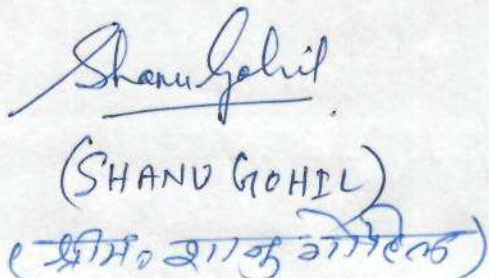 Shanu Gohil
(SHANU GOHIL)
(श्रीम. शानु गोहिल)